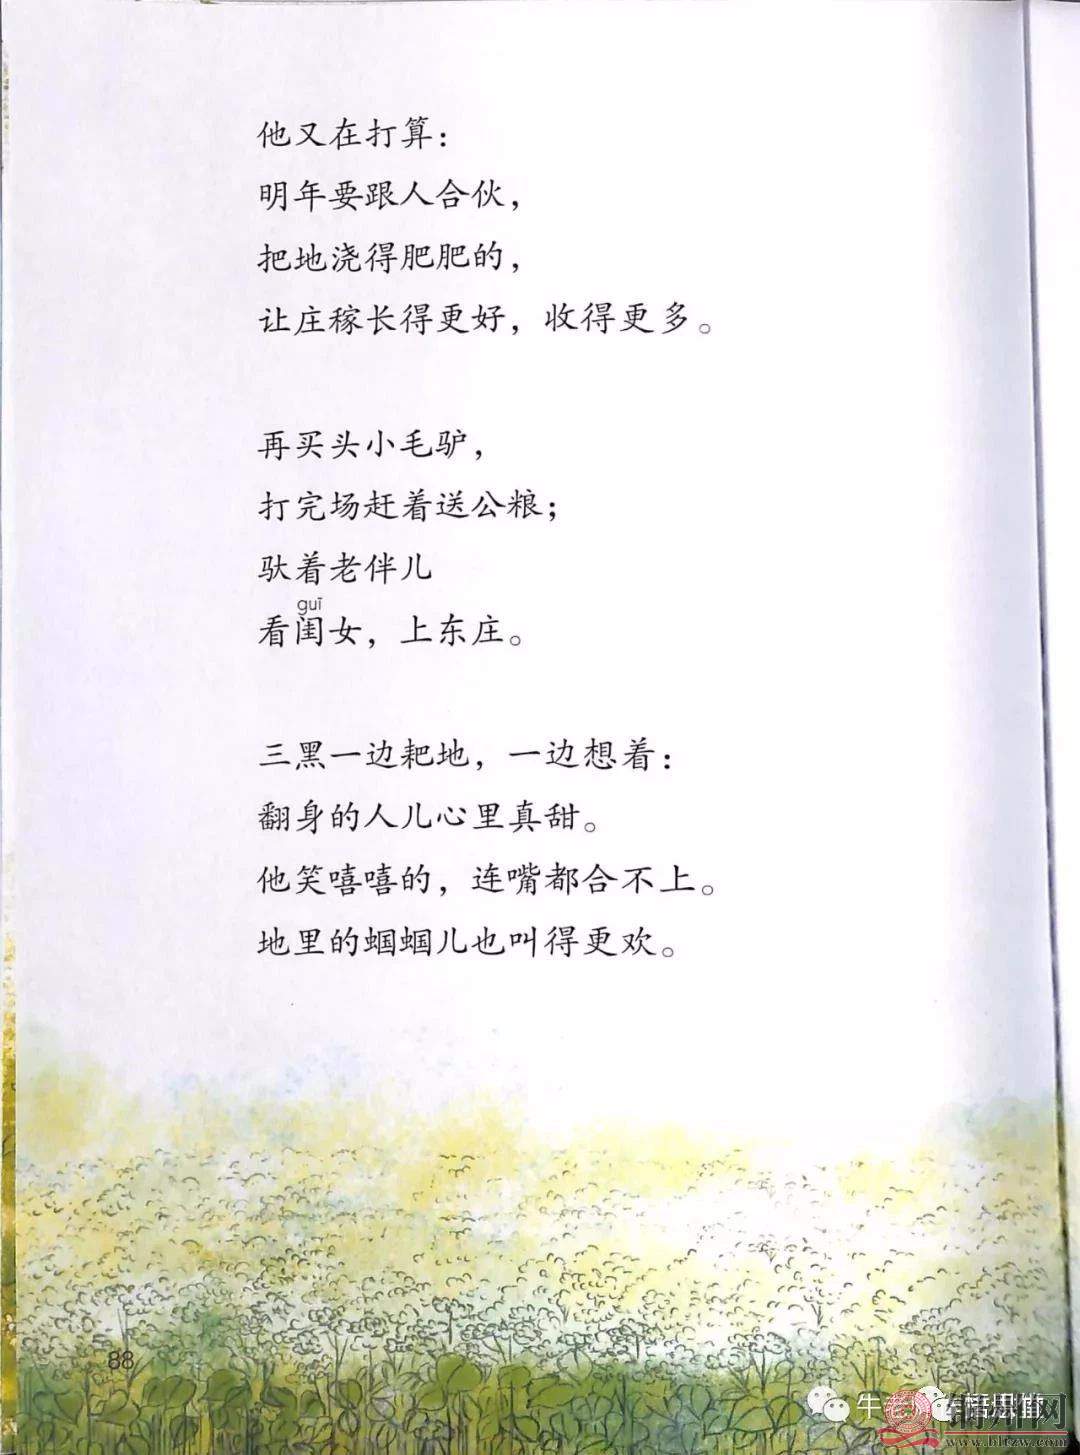 他又在打算：
明年要跟人合伙，
把地浇得肥肥的，
让庄稼长得更好，收得更多。
再买头小毛驴，
打完场赶着送公粮；
驮着老伴儿
guī
看闺女，上东庄。
三黑一边耙地，一边想着：
翻身的人儿心里真甜。
他笑嘻嘻的，连嘴都合不上。
地里的蝈蝈儿也叫得更欢。
88
www.hltzw.com